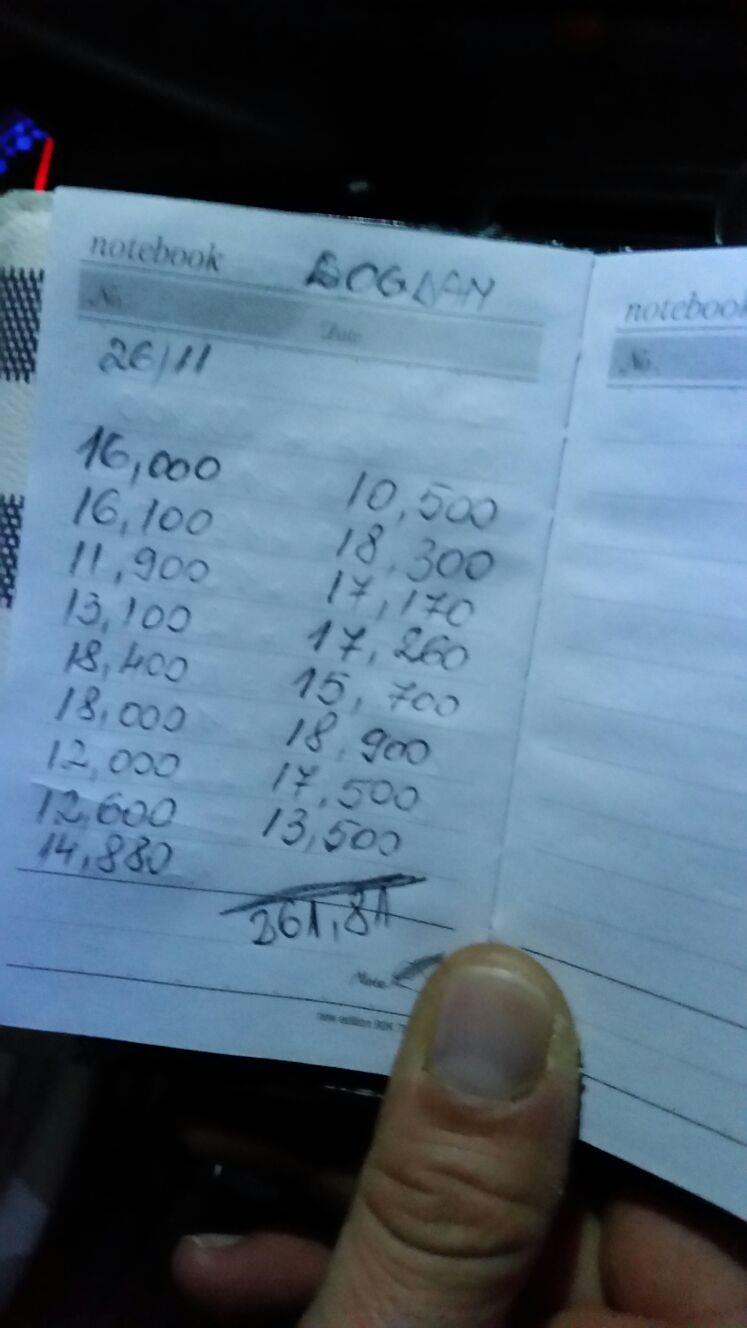 notebook BOGDAN
No.
Date
26/11
16,000
16,100
11,900
13,100
18,400
18,000
12,000
12,600
14,880
10,500
18,300
17,170
17,260
15,700
18,900
17,500
13,500
261,81
Note
notebook
No.